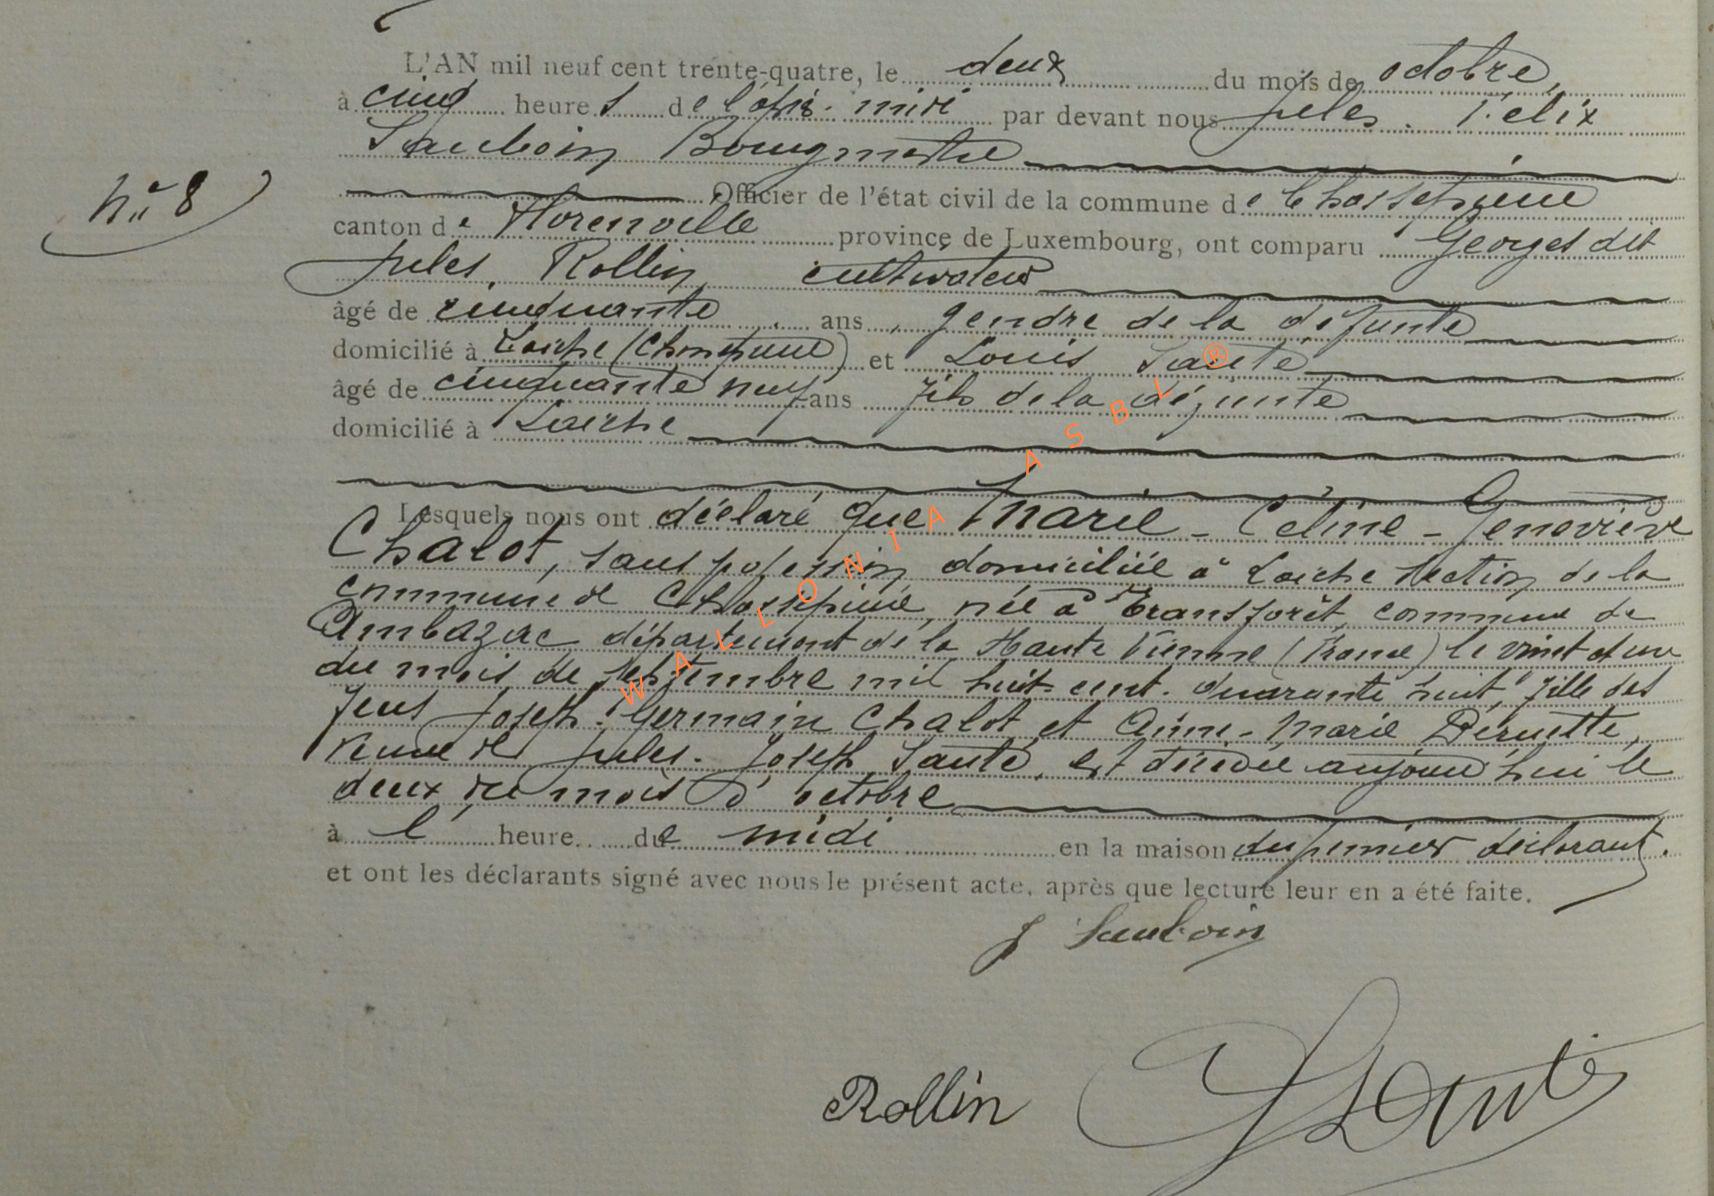 L'AN mil neuf cent trente-quatre, le deux du mois de octobre,
à cinq heures de l'après-midi par devant nous Jules-Félix
Sauboin Bourgmestre
N° 8
Officier de l'état civil de la commune de Chassepierre
canton de Florenville province de Luxembourg, ont comparu Georges dit
Jules Rollin cultivateur
âgé de cinquante ans, gendre de la défunte
domicilié à Laiche (Chassepierre) et Louis Santé
âgé de cinquante neuf ans fils de la défunte
domicilié à Laiche
Lesquels nous ont déclaré que Marie-Celine-Geneviève
Chalot, sans profession domiciliée à Laiche section de la
commune de Chassepierre, née à Transforêt, commune de
Ambazac département de la Haute Vienne (France) le vingt et un
du mois de septembre mil huit cent quarante huit, fille des
feus Joseph-Germain Chalot et Anne-Marie Déruette,
veuve de Jules-Joseph Santé, est décédée aujourd'hui le
deux du mois d'octobre
à l' heure de midi en la maison du premier déclarant.
et ont les déclarants signé avec nous le présent acte, après que lecture leur en a été faite.
J Sauboin
Rollin LSanté
WALLONIA ASBL ®